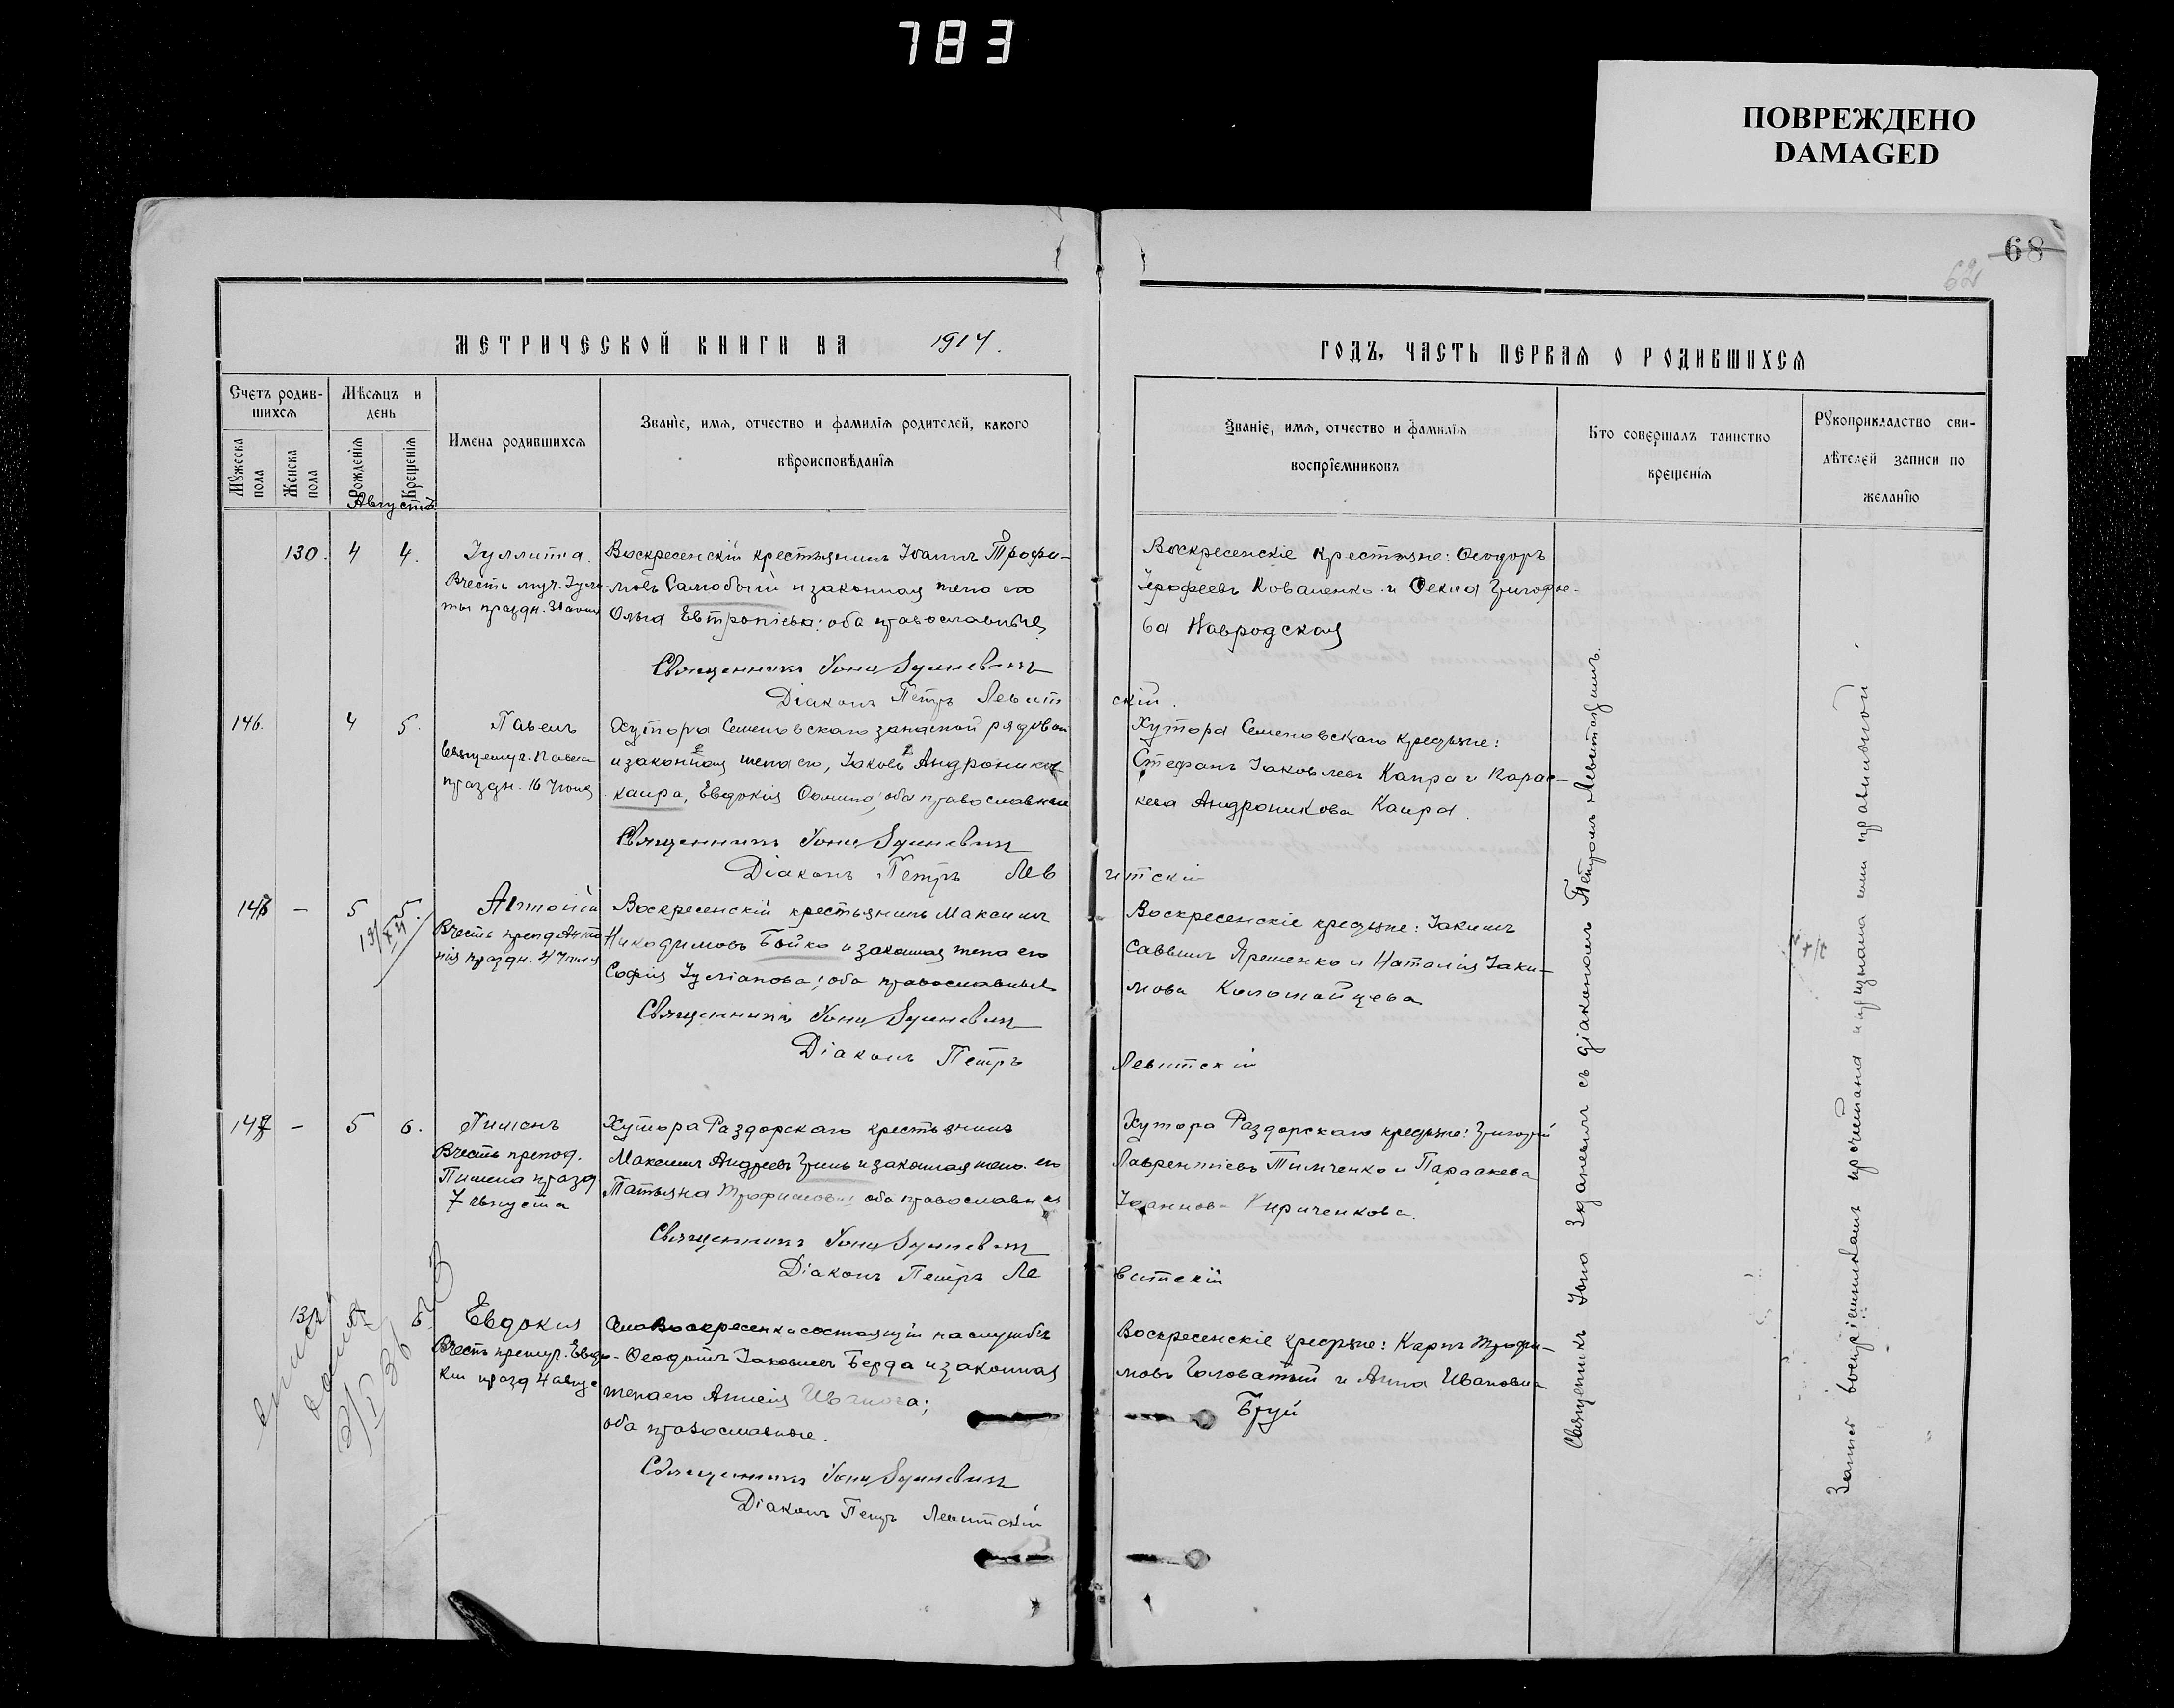 783
ПОВРЕЖДЕНО
DAMAGED
68
62
МЕТРИЧЕСКОЙ КНИГИ НА 1914.
ГОДЪ, ЧАСТЬ ПЕРВАЯ О РОДИВШИХСЯ
Счетъ родив-
шихся
Мужеска
пола
Женска
пола
Мѣсяцъ и
день
Рожденія
Крещенія
Имена родившихся
Званіе, имя, отчество и фамилія родителей, какого
вѣроисповѣданія
Званіе, имя, отчество и фамилія
воспріемниковъ
Кто совершалъ таинство
крещенія
Рукоприкладство сви-
дѣтелей записи по
желанію
Августъ
130. 4 4.
Іуллита
Въ честь муч. Іулли-
ты праздн.
Воскресенскій крестьянинъ Іоаннъ Трофи-
мовъ Самобоцій и законная жена его
Ольга Евтропіева: оба православные
Священникъ Іона
Діаконъ Петръ Левитскій.
Воскресенскіе крестьяне: Ѳеодоръ
Ерофеевъ Коваленко и Ѳекла
ва Навродская
146. 4 5.
Павелъ
Священмуч. Павла
праздн. 16 Іюля
Хутора Семеновскаго запасной рядовой
и законная жена его, Іаковъ Андрониковъ
Каира, Евдокія Ѳомина; оба православные
Священникъ Іона
Діаконъ Петръ Левитскій
Хутора Семеновскаго кресьяне:
Стефанъ Іаковлевъ Каира и Парас-
кева Андроникова Каира.
147 - 5 5.
Антоній
Въ честь препод. Анто-
нія праздн. Іюля
Воскресенскій крестьянинъ Максимъ
Никодимовъ Бойко и законная жена его
Софія Іуліанова; оба православные
Священникъ Іона
Діаконъ Петръ Левитскій
Воскресенскіе кресьяне: Іакимъ
Саввинъ Ярешенко и Наталія Іаки-
мова Коломойцева
148 - 5 6.
Пименъ
Въ честь препод.
Пимена празд
7 августа
Хутора Раздорскаго крестьянинъ
Максимъ Андреевъ Гринь и законная жена его
Татьяна Трофимова; оба православные
Священникъ Іона
Діаконъ Петръ Левитскій
Хутора Раздорскаго кресьяне: Григорій
Лаврентіевъ Тимченко и Параскева
Іоаннова Кириченкова.
131 6.
Евдокія
Въ честь премуч. Евдо-
кіи празд 4 авгус
Села Воскресенки состоящій на службѣ
Ѳеодотъ Іаковлевъ Берда и законная
жена его Анисія Иванова;
оба православные.
Священникъ Іона
Діаконъ Петръ Левитскій
Воскресенскіе кресьяне: Карпъ Трофи-
мовъ Головатый и Анна Ивановна
Бруй
Священникъ Іона съ діакономъ Петромъ Левитскимъ.
Запись воспріемникамъ прочитана и признана ими правильной.